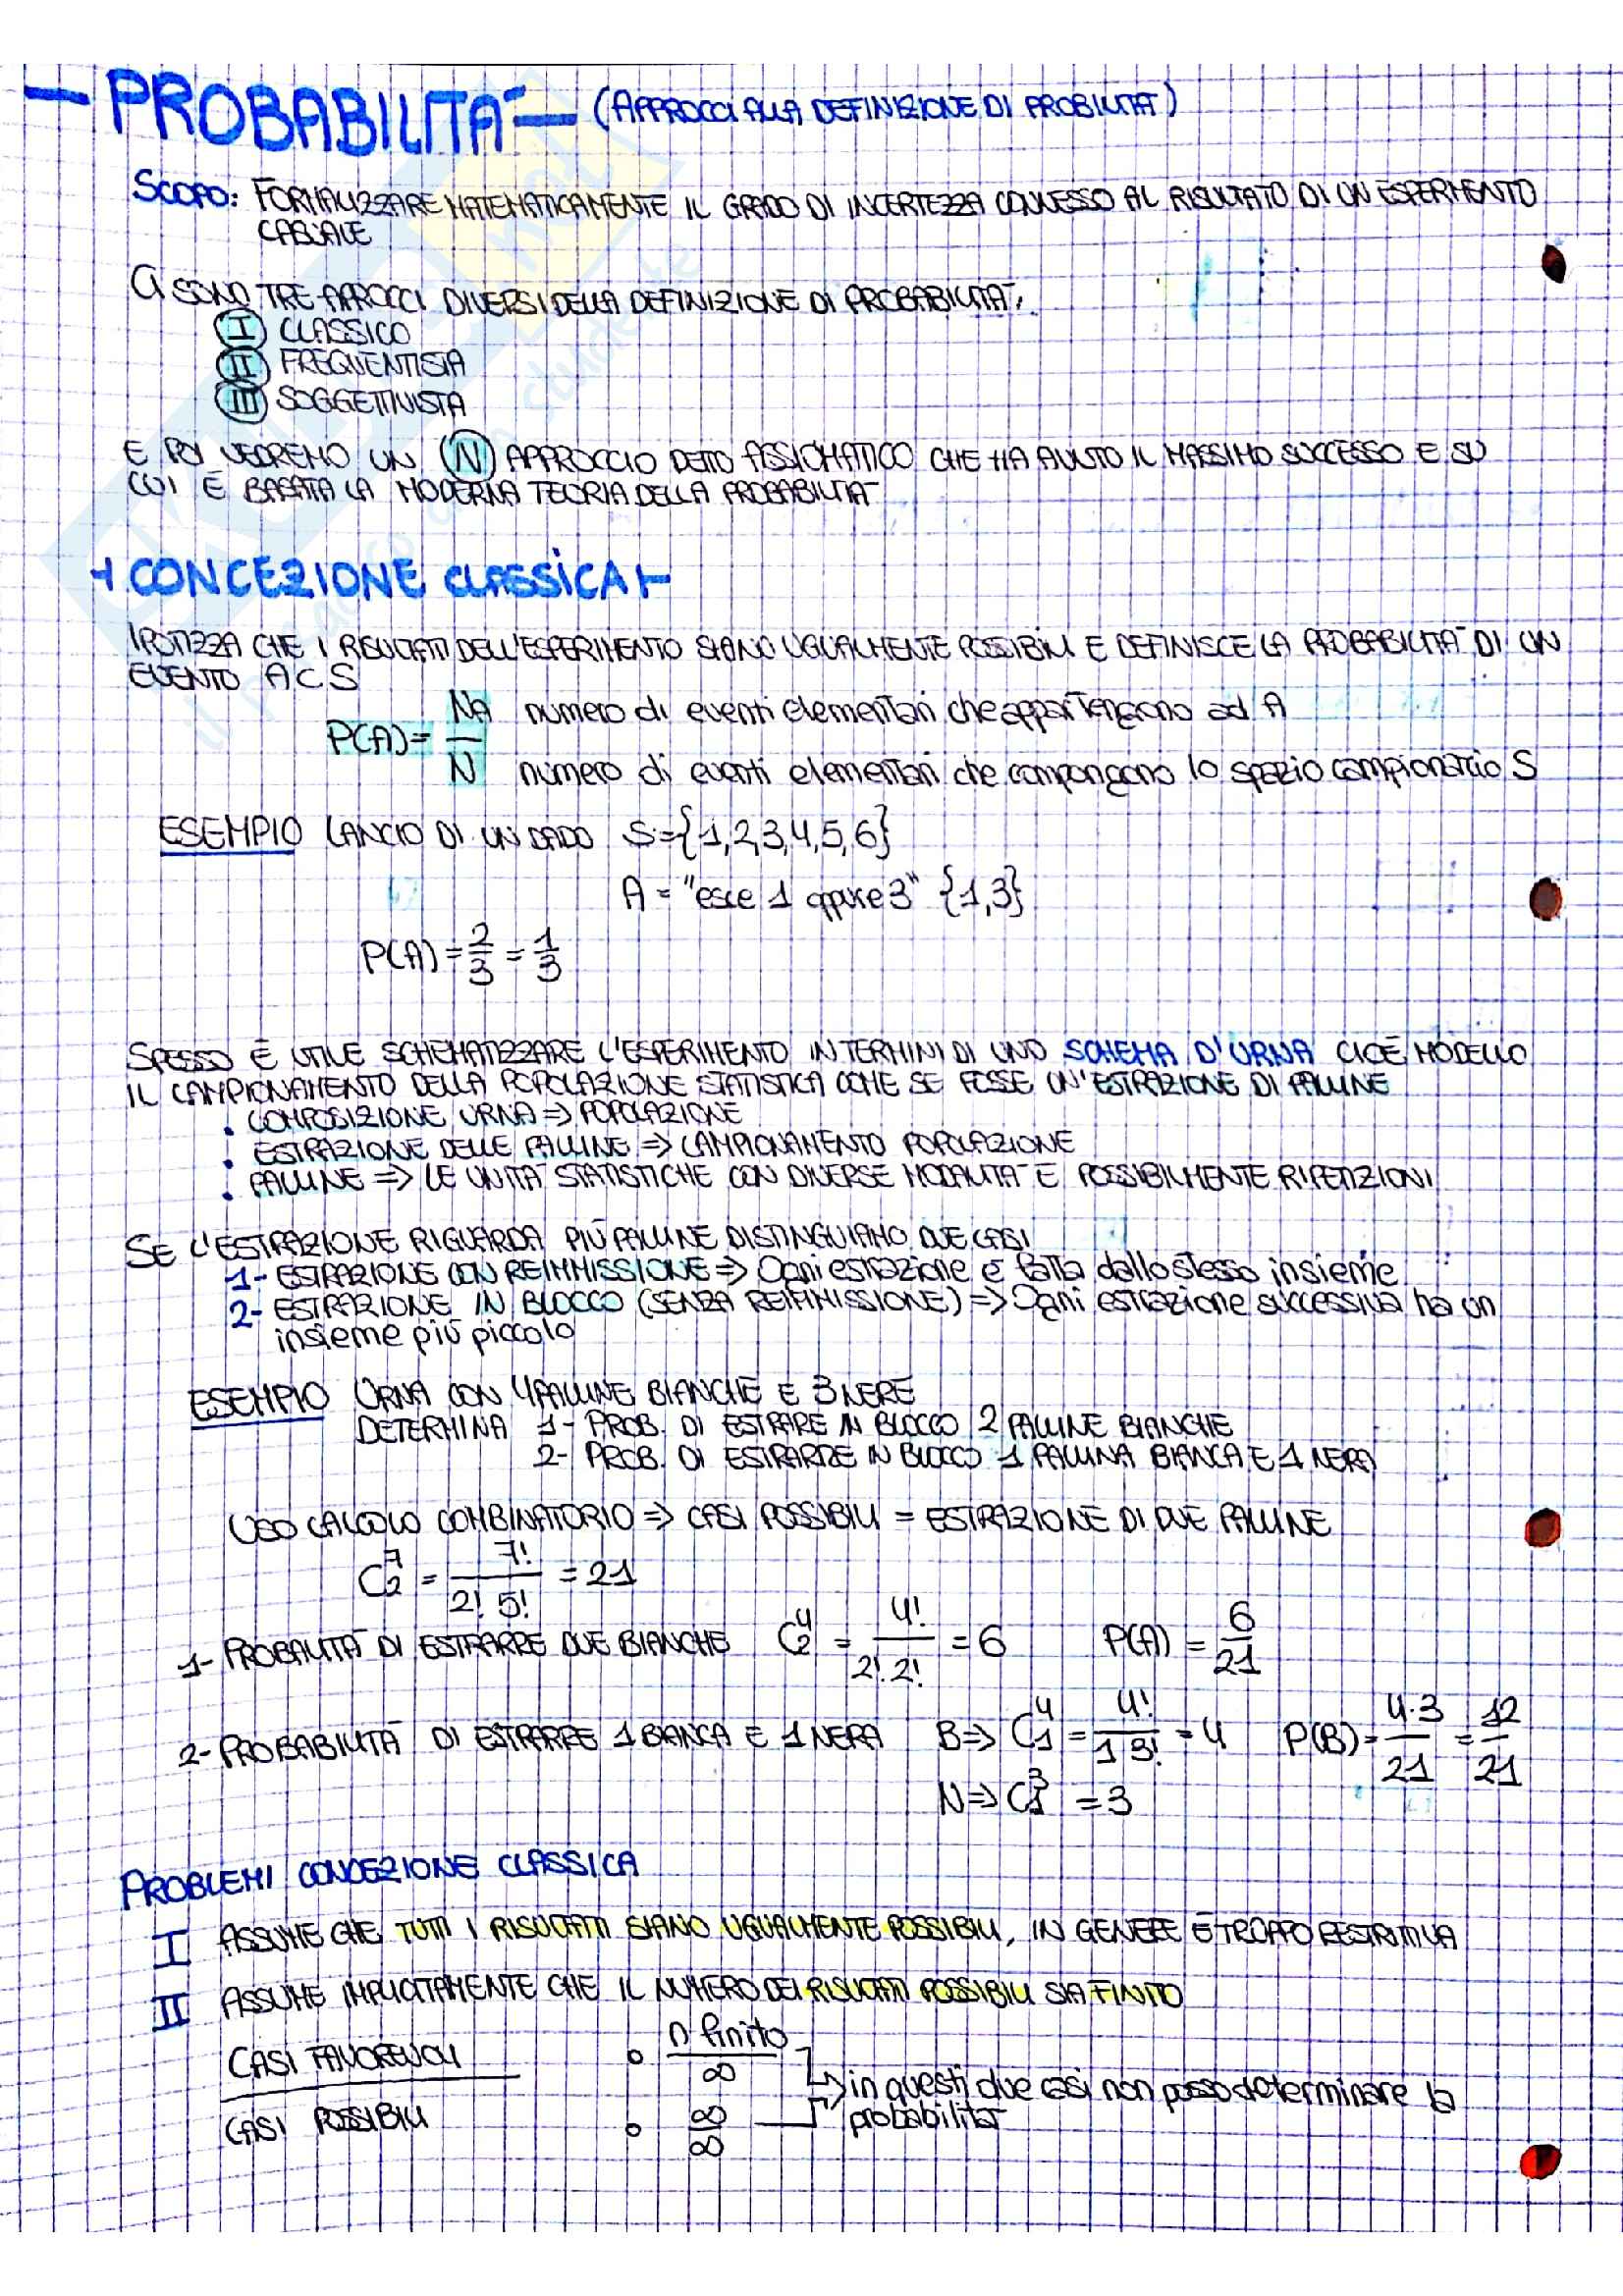 — PROBABILITÀ — (APPROCCI ALLA DEFINIZIONE DI PROBILITÀ)
SCOPO: FORMALIZZARE MATEMATICAMENTE IL GRADO DI INCERTEZZA CONNESSO AL RISULTATO DI UN ESPERIMENTO
CASUALE
CI SONO TRE APPROCCI DIVERSI DELLA DEFINIZIONE DI PROBABILITÀ:
I CLASSICO
II FREQUENTISTA
III SOGGETTIVISTA
E POI VEDREMO UN (IV) APPROCCIO DETTO ASSIOMATICO CHE HA AVUTO IL MASSIMO SUCCESSO E SU
CUI È BASATA LA MODERNA TEORIA DELLA PROBABILITÀ
CONCEZIONE CLASSICA
IPOTIZZA CHE I RISULTATI DELL'ESPERIMENTO SIANO UGUALMENTE POSSIBILI E DEFINISCE LA PROBABILITÀ DI UN
EVENTO A ⊂ S
P(A) = NA / N
numero di eventi elementari che appartengono ad A
numero di eventi elementari che compongono lo spazio campionario S
ESEMPIO LANCIO DI UN DADO S={1,2,3,4,5,6}
A = "esce 1 oppure 3" {1,3}
P(A) = 2/3 = 1/3
SPESSO È UTILE SCHEMATIZZARE L'ESPERIMENTO IN TERMINI DI UNO SCHEMA D'URNA CIOÈ MODELLO
IL CAMPIONAMENTO DELLA POPOLAZIONE STATISTICA COME SE FOSSE UN'ESTRAZIONE DI PALLINE
• COMPOSIZIONE URNA => POPOLAZIONE
• ESTRAZIONE DELLE PALLINE => CAMPIONAMENTO POPOLAZIONE
• PALLINE => LE UNITÀ STATISTICHE CON DIVERSE MODALITÀ E POSSIBILMENTE RIPETIZIONI
SE L'ESTRAZIONE RIGUARDA PIÙ PALLINE DISTINGUIAMO DUE CASI
1- ESTRAZIONE CON REIMMISSIONE => Ogni estrazione è fatta dallo stesso insieme
2- ESTRAZIONE IN BLOCCO (SENZA REIMMISSIONE) => Ogni estrazione successiva ha un
insieme più piccolo
ESEMPIO URNA CON 4 PALLINE BIANCHE E 3 NERE
DETERMINA 1- PROB. DI ESTRARE IN BLOCCO 2 PALLINE BIANCHE
2- PROB. DI ESTRARRE IN BLOCCO 1 PALLINA BIANCA E 1 NERA
USO CALCOLO COMBINATORIO => CASI POSSIBILI = ESTRAZIONE DI DUE PALLINE
C⁷₂ = 7! / 2! 5! = 21
1- PROBALITÀ DI ESTRARRE DUE BIANCHE C⁴₂ = 4! / 2! 2! = 6 P(A) = 6/21
2- PROBABILITÀ DI ESTRARRE 1 BIANCA E 1 NERA B => C⁴₁ = 4! / 1 3! = 4 P(B) = 4·3/21 = 12/21
N => C³₁ = 3
PROBLEMI CONCEZIONE CLASSICA
I ASSUME CHE TUTTI I RISULTATI SIANO UGUALMENTE POSSIBILI, IN GENERE È TROPPO RESTRITTIVA
II ASSUME IMPLICITAMENTE CHE IL NUMERO DEI RISULTATI POSSIBILI SIA FINITO
CASI FAVOREVOLI / CASI POSSIBILI
• n finito / ∞
• ∞ / ∞
in questi due casi non posso determinare la
probabilità